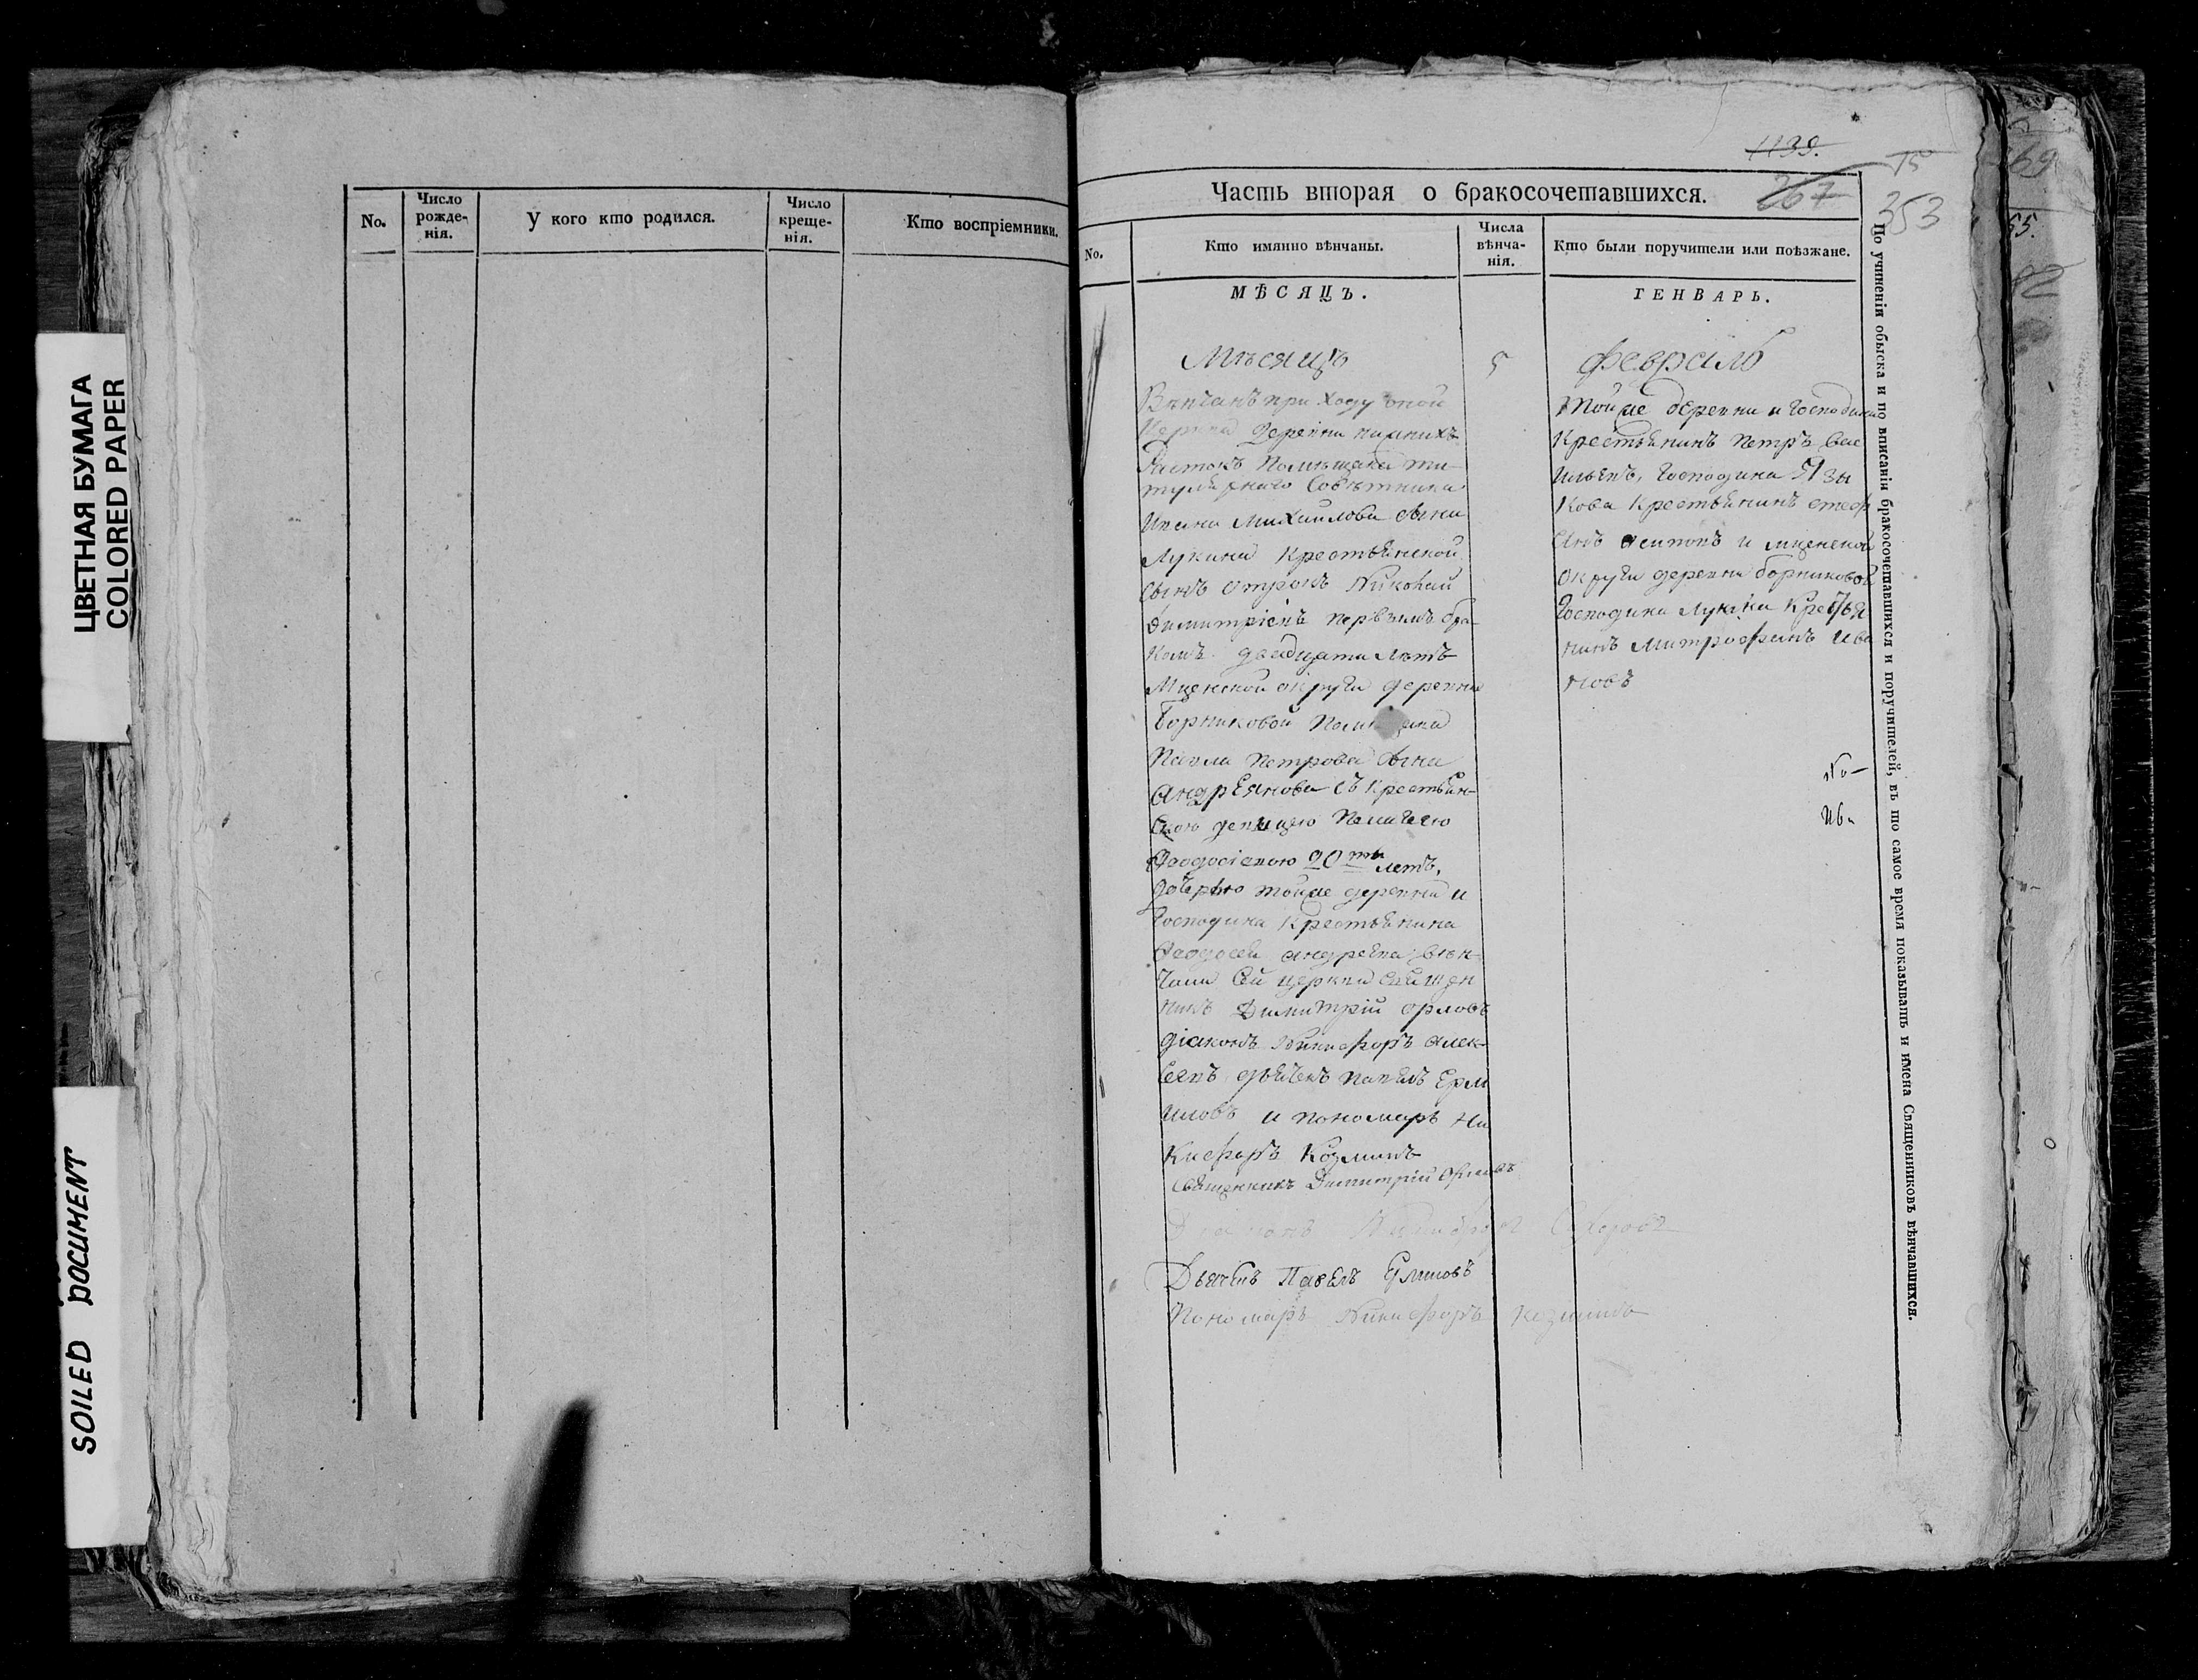 ЦВЕТНАЯ БУМАГА
COLORED PAPER
SOILED DOCUMENT
No.
Число рожде-нія.
У кого кто родился.
Число креще-нія.
Кто воспріемники.
1139.
75
Часть вторая о бракосочетавшихся.
267
353
No.
Кто имянно вѣнчаны.
Числа вѣнча-нія.
Кто были поручители или поѣзжане.
МѢСЯЦЪ.
ГЕНВАРЬ.
Мѣсяцъ
5
февраль
Венчанъ приходу оной
Церкви деревни нижнихъ
Растокъ Помещика ти-
тулярнаго Советника
Ивана Михаилова сына
Лукина крестьянской
сынъ отрокъ Николай
Димитріевъ первымъ бра-
комъ двадцати летъ
Мценской округи деревни
Борниковой помещика
Павла Петрова сына
Андреянова съ крестьян-
скою девицею Пелагеею
Феодосіевою 20ти летъ,
дочерью тойже деревни и
Господина крестьянина
Феодосея Андреева, вен-
чали сей церкви священ
никъ Димитрій Орловъ
діаконъ Никифоръ Алек-
сеевъ дьячекъ Павелъ Ерм
иловъ и пономарь Ни
кифоръ Козминъ
Священникъ Димитрій Орловъ
Никифоръ
Дьячекъ Павелъ Ермиловъ
Пономарь Никифоръ Козминъ
Тойже деревни и Господина
крестьянинъ Петръ Вас
ильевъ, Господина Язы
кова крестьянинъ Стеф
анъ и мценской
округи деревни борниковой
Господина Лукина крестья
нинъ Митрофанъ Ива
новъ
По учиненіи обыска и по вписаніи бракосочетавшихся и поручителей, въ то самое время показывать и имена Священниковъ вѣнчавшихся.
69
55.